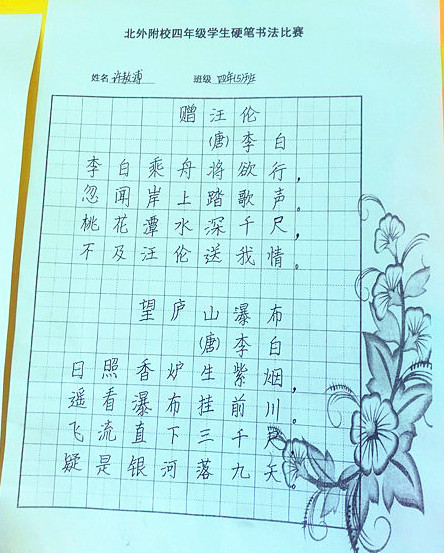 北外附校四年级学生硬笔书法比赛
姓名 许敖溥 班级 四年(5)班
赠汪伦
(唐)李白
李白乘舟将欲行，
忽闻岸上踏歌声。
桃花潭水深千尺，
不及汪伦送我情。
望庐山瀑布
(唐)李白
日照香炉生紫烟，
遥看瀑布挂前川。
飞流直下三千尺，
疑是银河落九天。